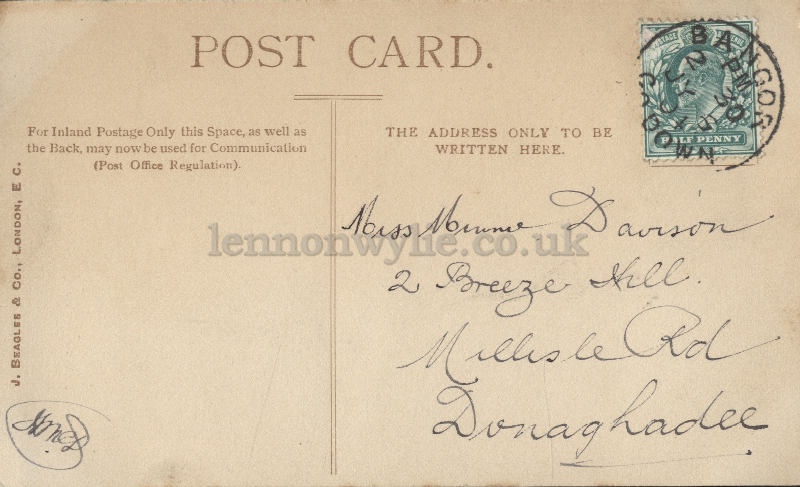 POST CARD.
For Inland Postage Only this Space, as well as
the Back, may now be used for Communication
(Post Office Regulation).
THE ADDRESS ONLY TO BE
WRITTEN HERE.
J. BEAGLES & CO., LONDON, E C.
BANGOR
CO DOWN
HALF PENNY
lennonwylie.co.uk
Miss Minnie Davison
2 Breeze Hill.
Millisle Rd
Donaghadee